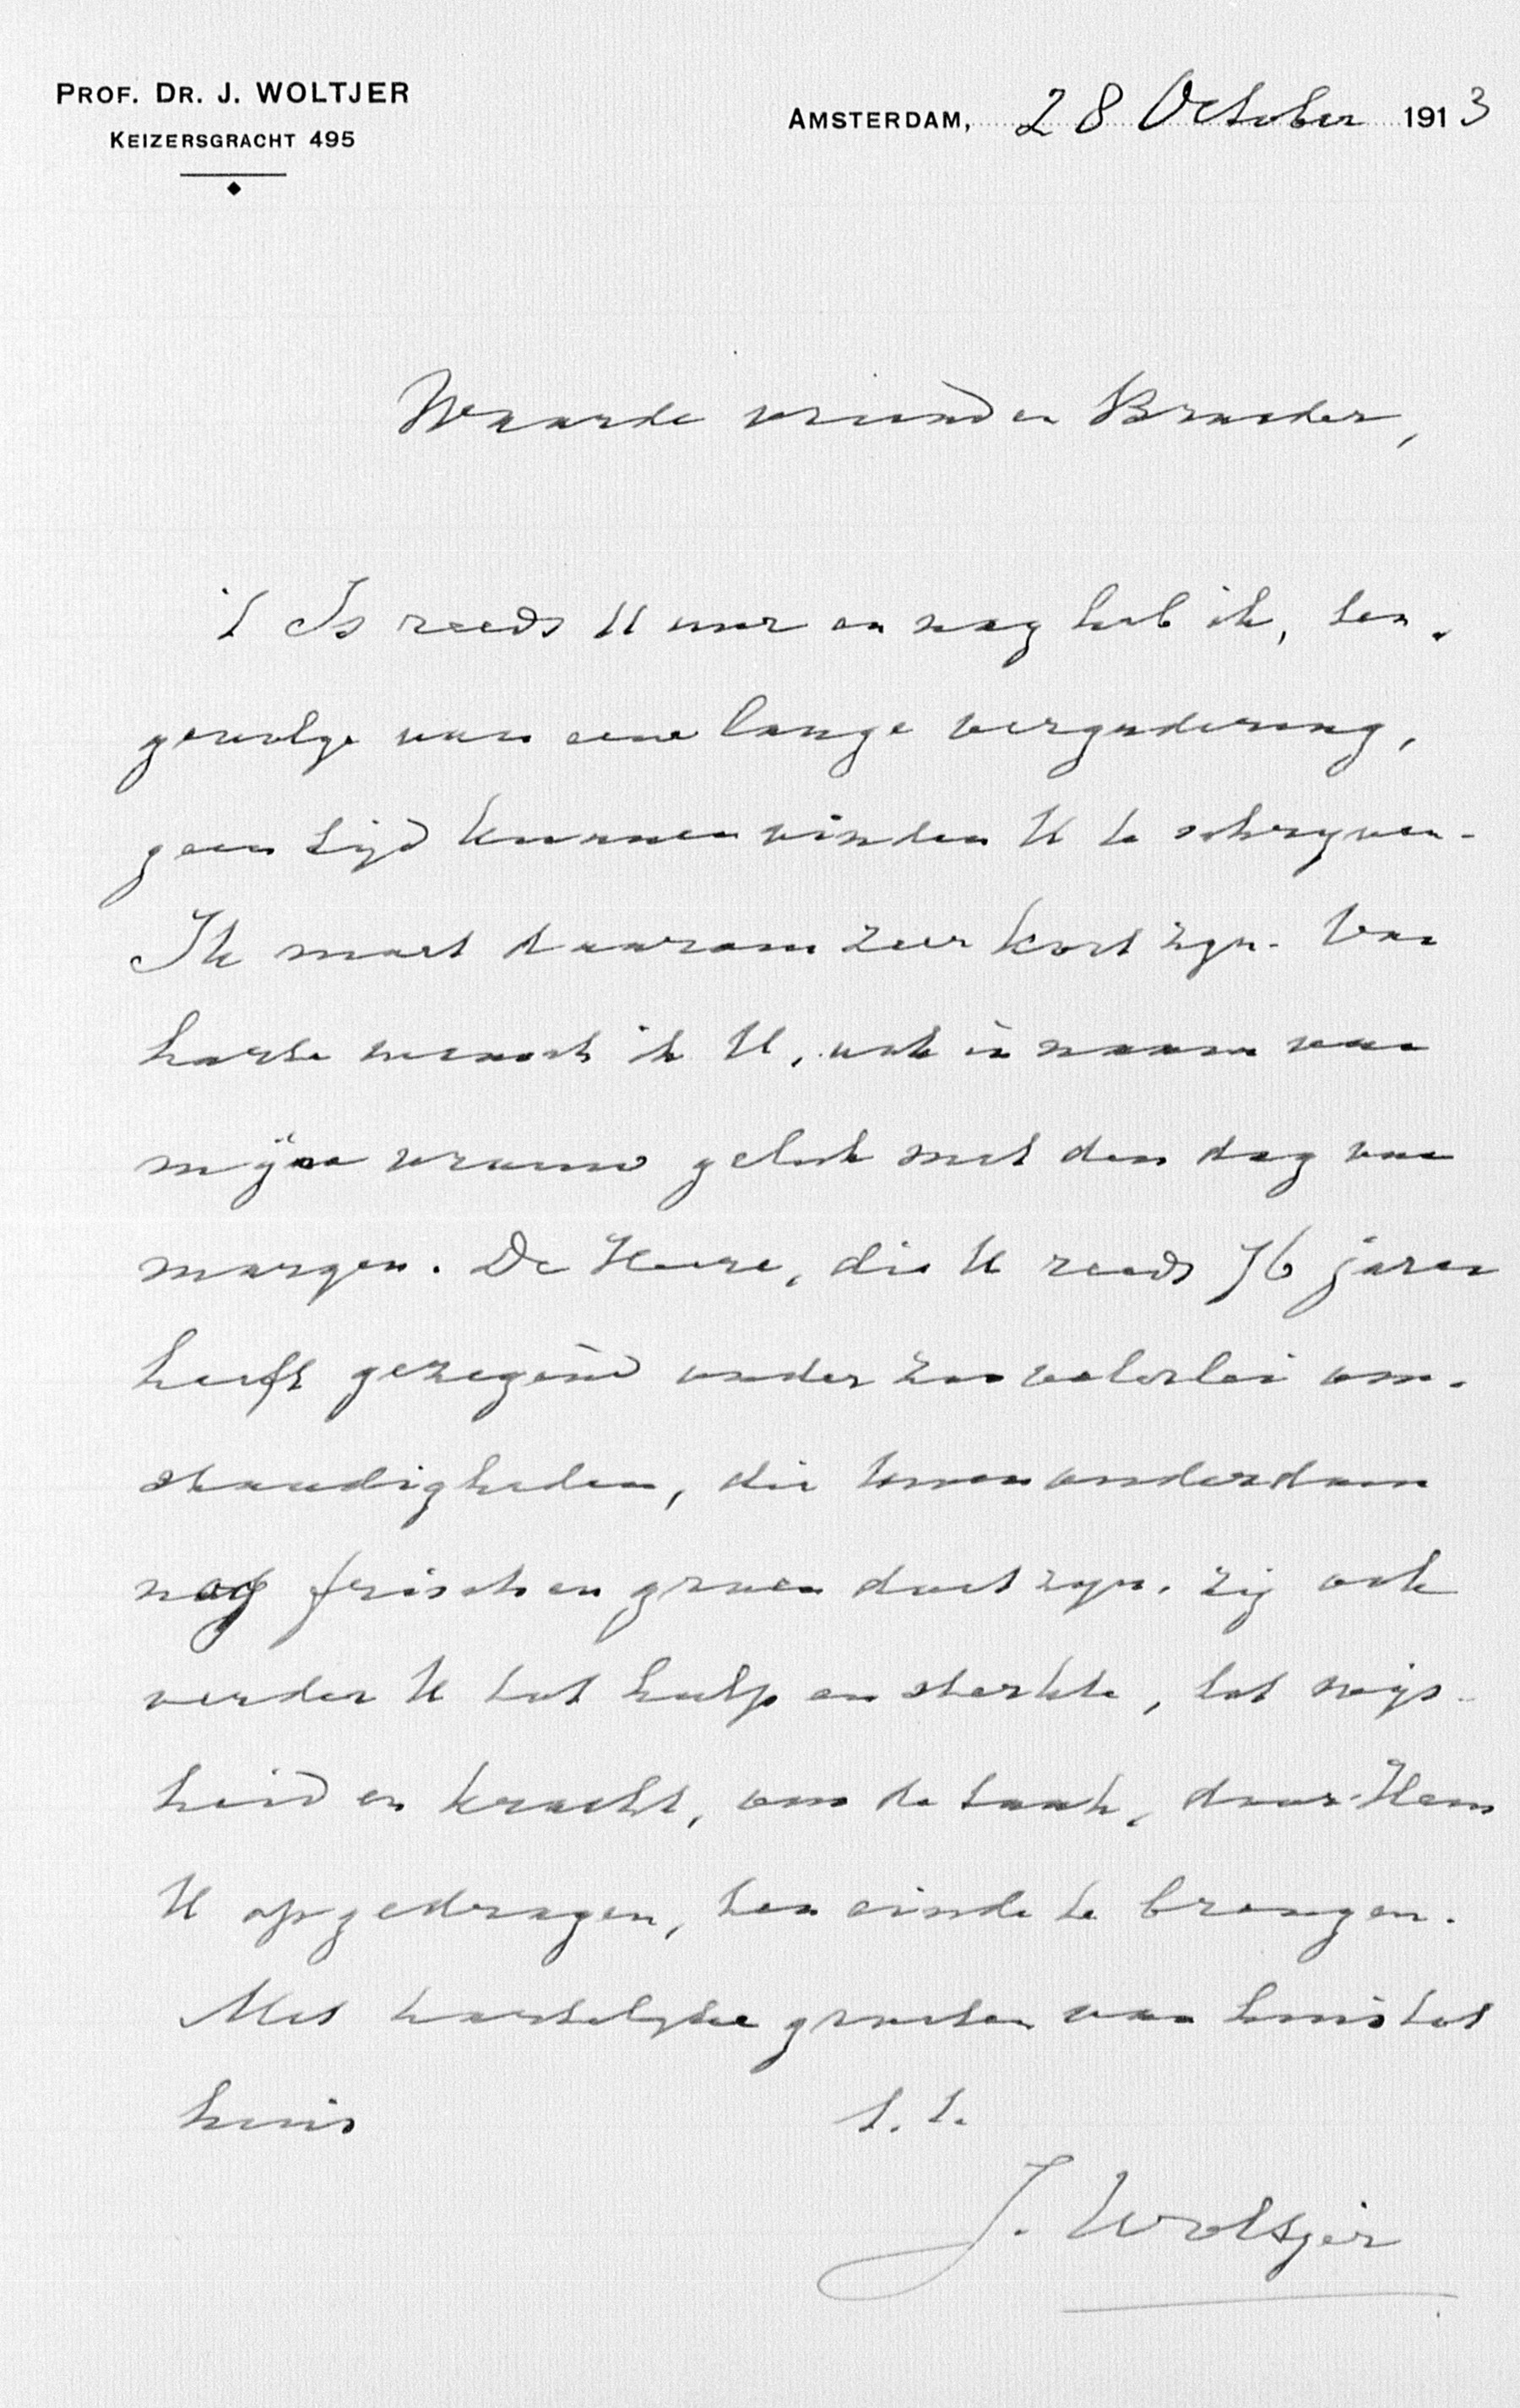 PROF. DR. J. WOLTJER
KEIZERSGRACHT 495
AMSTERDAM, 28 October 1913
Waarde vriend en Broeder,
't Is reeds 11 uur en nog heb ik, ten
gevolge van eene lange vergadering,
geen tijd kunnen vinden U te schrijven.
Ik moet daarom zeer kort zijn. Van
harte wensch ik U, ook in naam van
mijne vrouw geluk met den dag van
morgen. De Heere, die U reeds 76 jaren
heeft gezegend onder zoo velerlei om-
standigheden, die U in ouderdom
nog frisch en groen doet zijn, zij ook
verder U tot hulp en sterkte, tot wijs-
heid en kracht, om de taak, door Hem
U opgedragen, ten einde te brengen.
Met hartelijke groeten van huis tot
huis t.t.
J. Woltjer